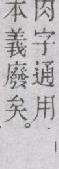 肉字通用
本義廢矣。